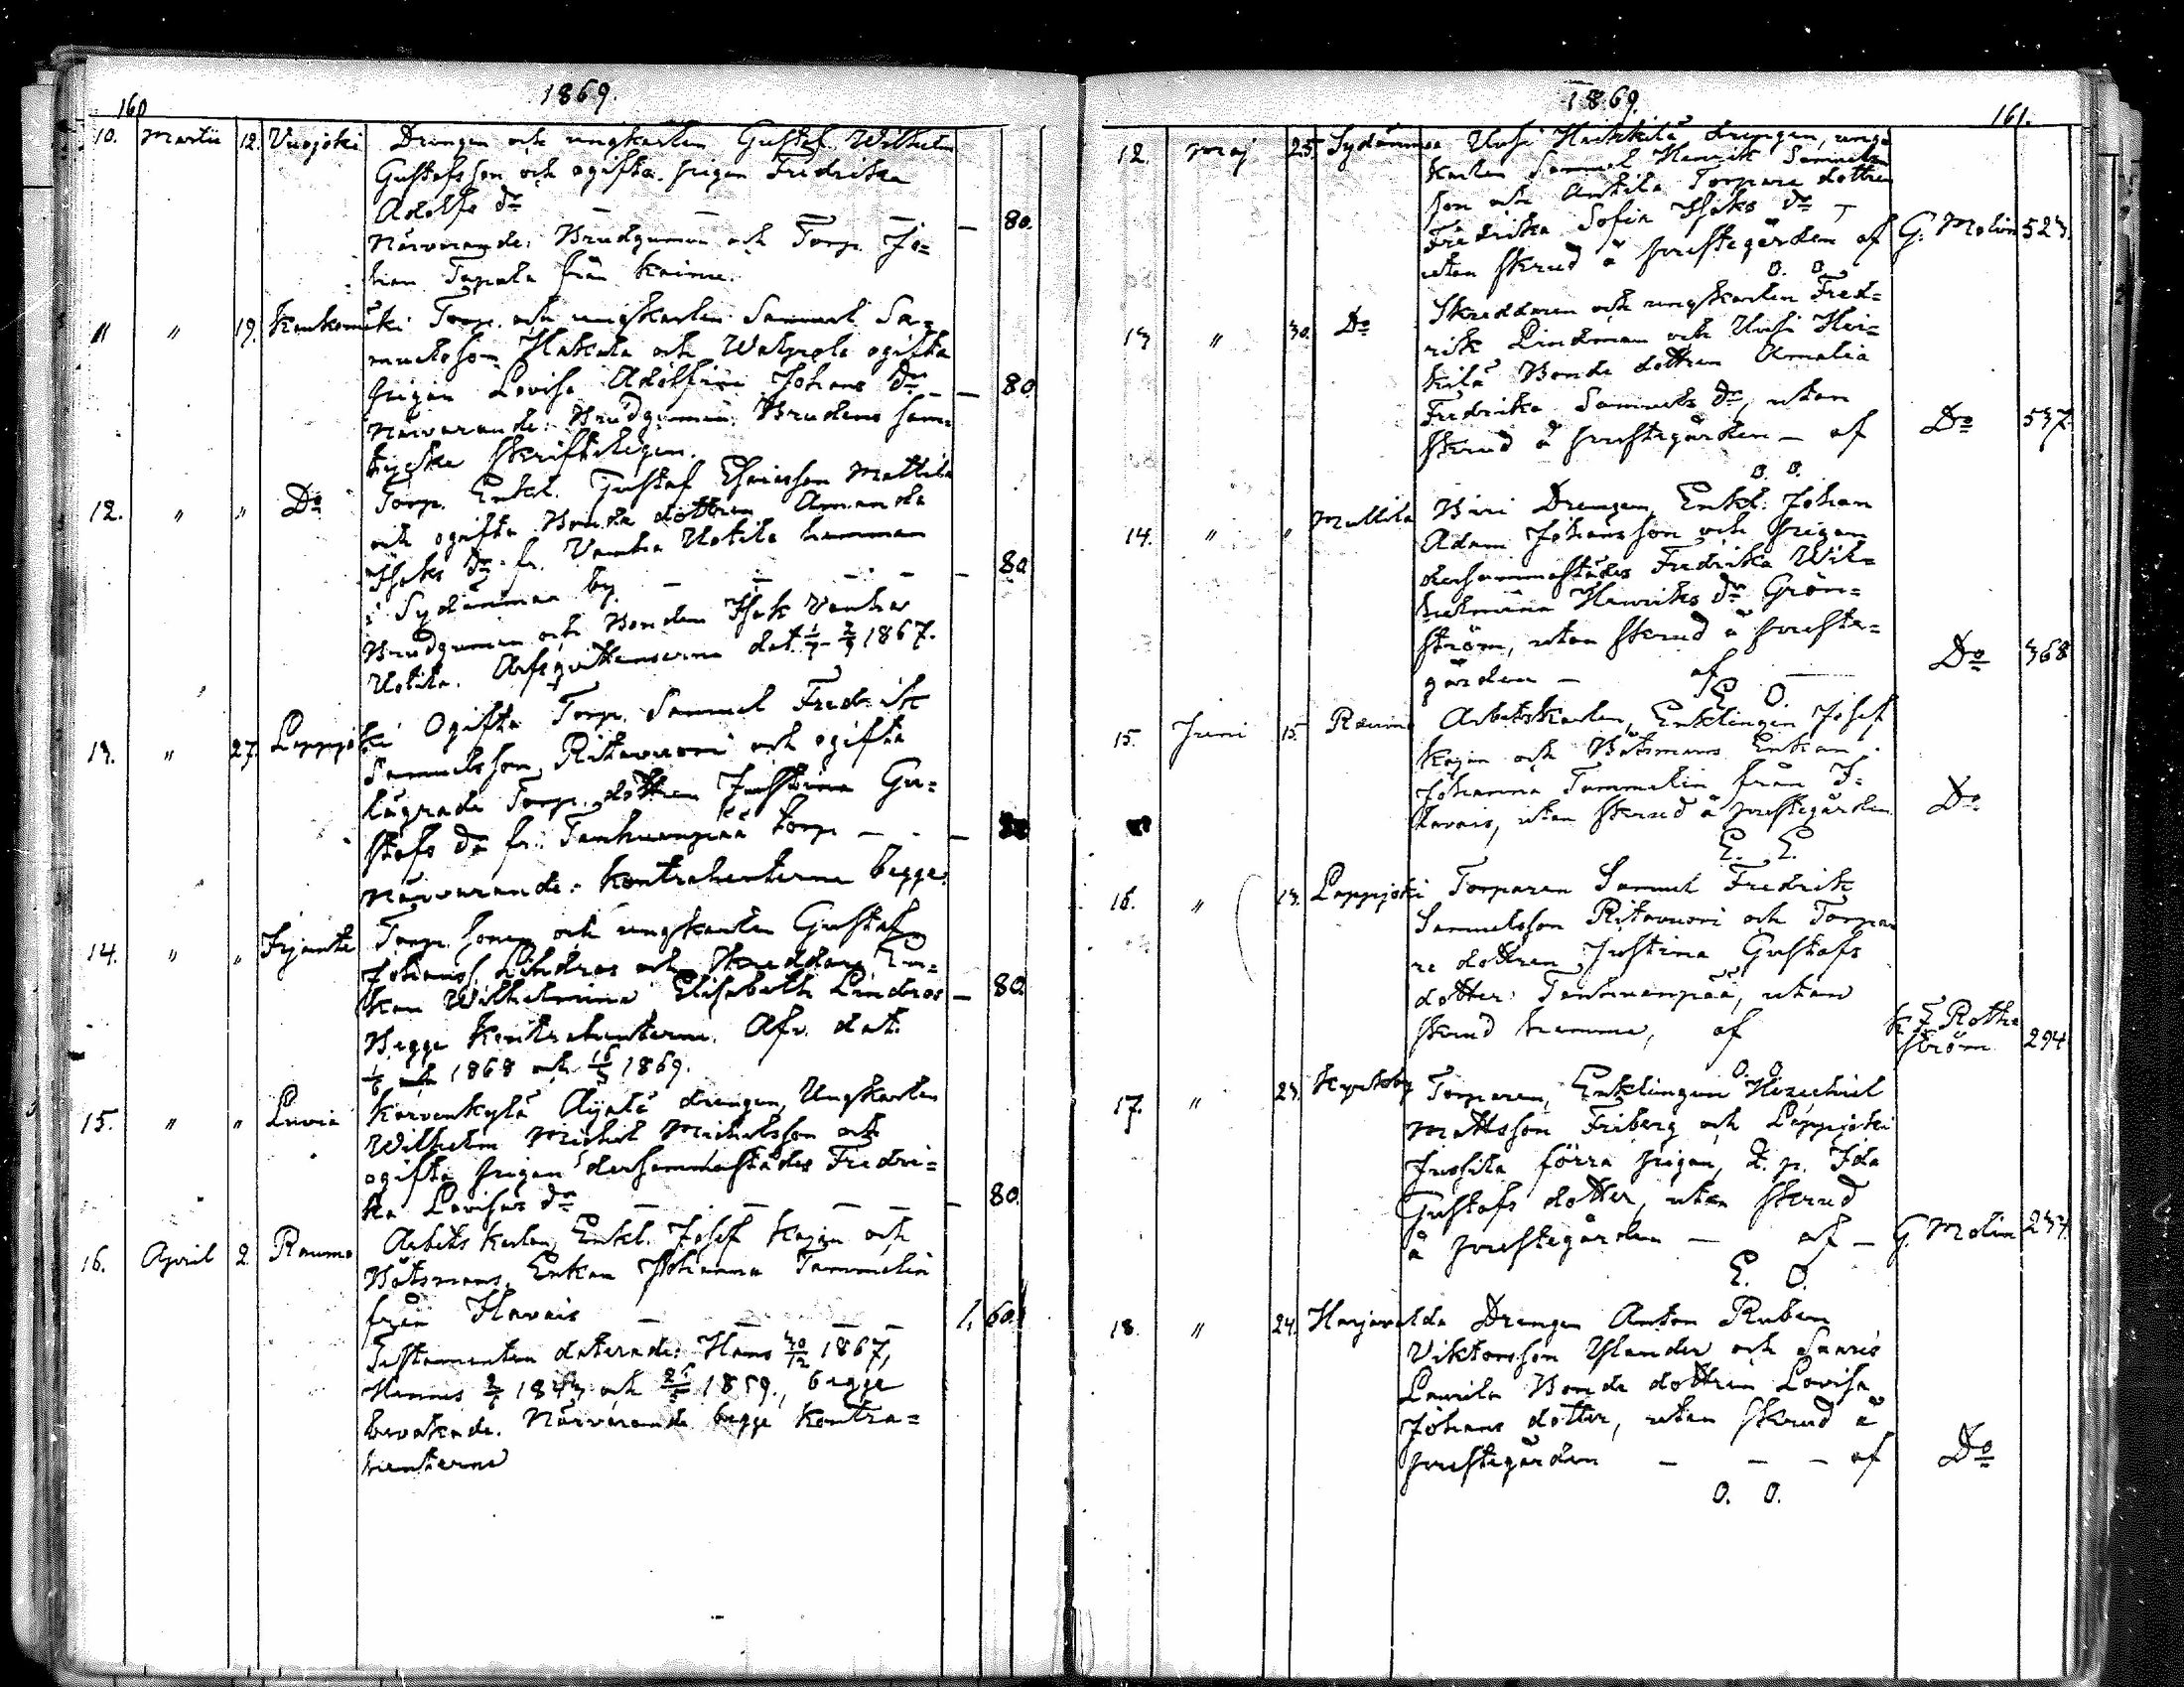 160
1869.
10. Martii 12. Vuojoki Drengen och ungkarlen Gustaf Wilhelm
Gustafsson och ogifta pigan Fredrika
Adolfs dr — — — — 80.
Närvarande: Brudgummen och Torp. Jo=
han Tapala från Kainu.
11 " 19. Torp. och ungkarlen Samuel Sa=
muelsson Hakala och ogifta
pigan Lovisa Johans dr — — 80
Närvarande: Brudgummen. Brudens sam=
tycke skrifteligen.
12. " " Do Torp. Enkl. Gustaf Mattila
och ogifta Bonde dottren Amanda
Isaks dr fr. Vanha Uotila hemman
i Sydänmaa by. — — — — 80
Brudgummen och Bonden Isak Vanha
Uotila. dat. 1867.
13. " 27. Lappijoki Ogifta Torp. Samuel Fredrik
Samuelsson Ritavuori och ogifta
Torp. dottren Justina Gu=
stafs dr fr. Tanhuanpää torp — — —
Närvarande: Kontrahenterne begge.
14. " " Irjante Torp. sonen och ungkarlen Gustaf
Johanss. Lindros och Skreddare En=
kan Wilhelmina Elisabeth Lindros — 80.
Begge Kontrahenterne. Afv. dat.
1868 och 1869.
15. " " Luvia Korvenkylä Äijälä drengen, Ungkarlen
Wilhelm Michel Michelsson och
ogifta pigan dersammastädes Fredri=
ka Lovisas dr — — — — 80.
16. April 2. Raumo Arbets karlen, Enkl. Josef Kajan och
Båtsmans Enkan Johanna Tammelin
från — — — — 1. 60.
Testamenten daterade: Hans 30/12 1867,
Hennes och 1859., begge
bevakade. Närvarande begge Kontra=
henterne
1869.
161.
12. Maj 25. Sydänmaa Uusi Heikkilä drengen, ung=
karlen Samuel Henrik Samuels
son och Anttila Torpare dottren
Fredrika Sofia Isaks dr —
utan skrud å prestegården af G. Molin 523.
O. O.
13 " 30. Do Skreddaren och ungkarlen Fred=
rik Lindman och Uusi Hei=
kilä Bonde dottren Amalia
Fredrika Samuels dr, utan
skrud å prestegården — af Do 537.
O. O.
14. " " Mullila Drengen, Enkl. Johan
Adam Johansson och pigan
dersammastädes Fredrika Wil=
helmina Henriks dr Grön=
ström, utan skrud å preste=
gården — af — Do 368
E. O.
15. Juni 15. Raumo Arbetskarlen, Enklingen Josef
Kajan och Båtsmans Enkan
Johanna Tammelin från
utan skrud å prestegården Do
E. E.
16. " 13. Lappijoki Torparen Samuel Fredrik
Samuelsson Ritavuori och Torpa
re dottren Justina Gustafs
dotter Tanhuanpää, utan
skrud hemma, af K. F. Roth
ström 294
O. O.
17. " 23. Torparen, Enklingen Hezechiel
Mattsson Friberg och Lappijoki
Jussila förra pigan, Ida
Gustafs dotter, utan skrud
å prestegården — af — G. Molin 237.
E. O.
18. " 24. Harjavalda Drengen Anton Ruben
Viktorsson Ylander och Saaris
Laurila Bonde dottren Lovisa
Johans dotter, utan skrud å
prestegården — — — af Do
O. O.